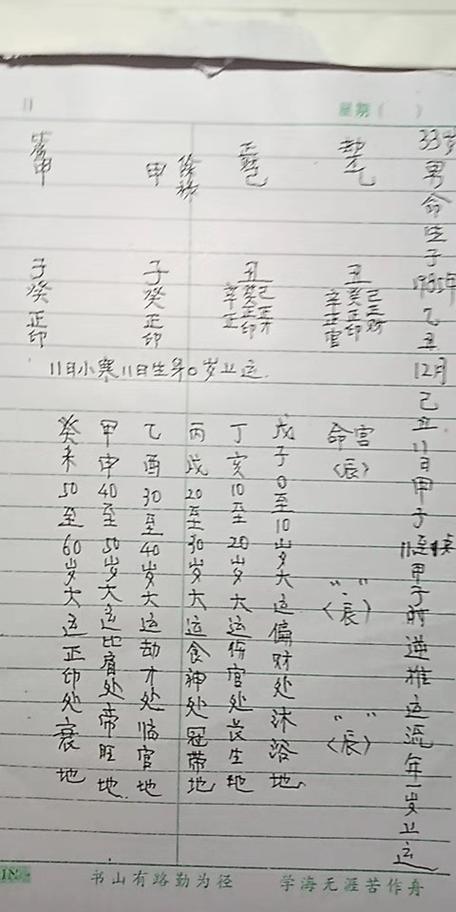 星期( )
33岁男命生于1985年乙丑12月己丑11日甲子11点甲子时逆推运流年一岁上运
劫乙 丑 己正财 癸正印 辛正官 命宫〈辰〉 〃〃〈辰〉 〃〃〈辰〉
正财己 丑 己正才 癸正印 辛正
甲 子癸正印
甲 子癸正印
11日小寒11日生年0岁上运.
戊子0至10岁大运偏财处沐浴地.
丁亥10至20岁大运伤官处长生地
丙戌20至30岁大运食神处冠带地
乙酉30至40岁大运劫才处临官地
甲申40至50岁大运比肩处帝旺地
癸未50至60岁大运正印处衰地
书山有路勤为径 学海无涯苦作舟